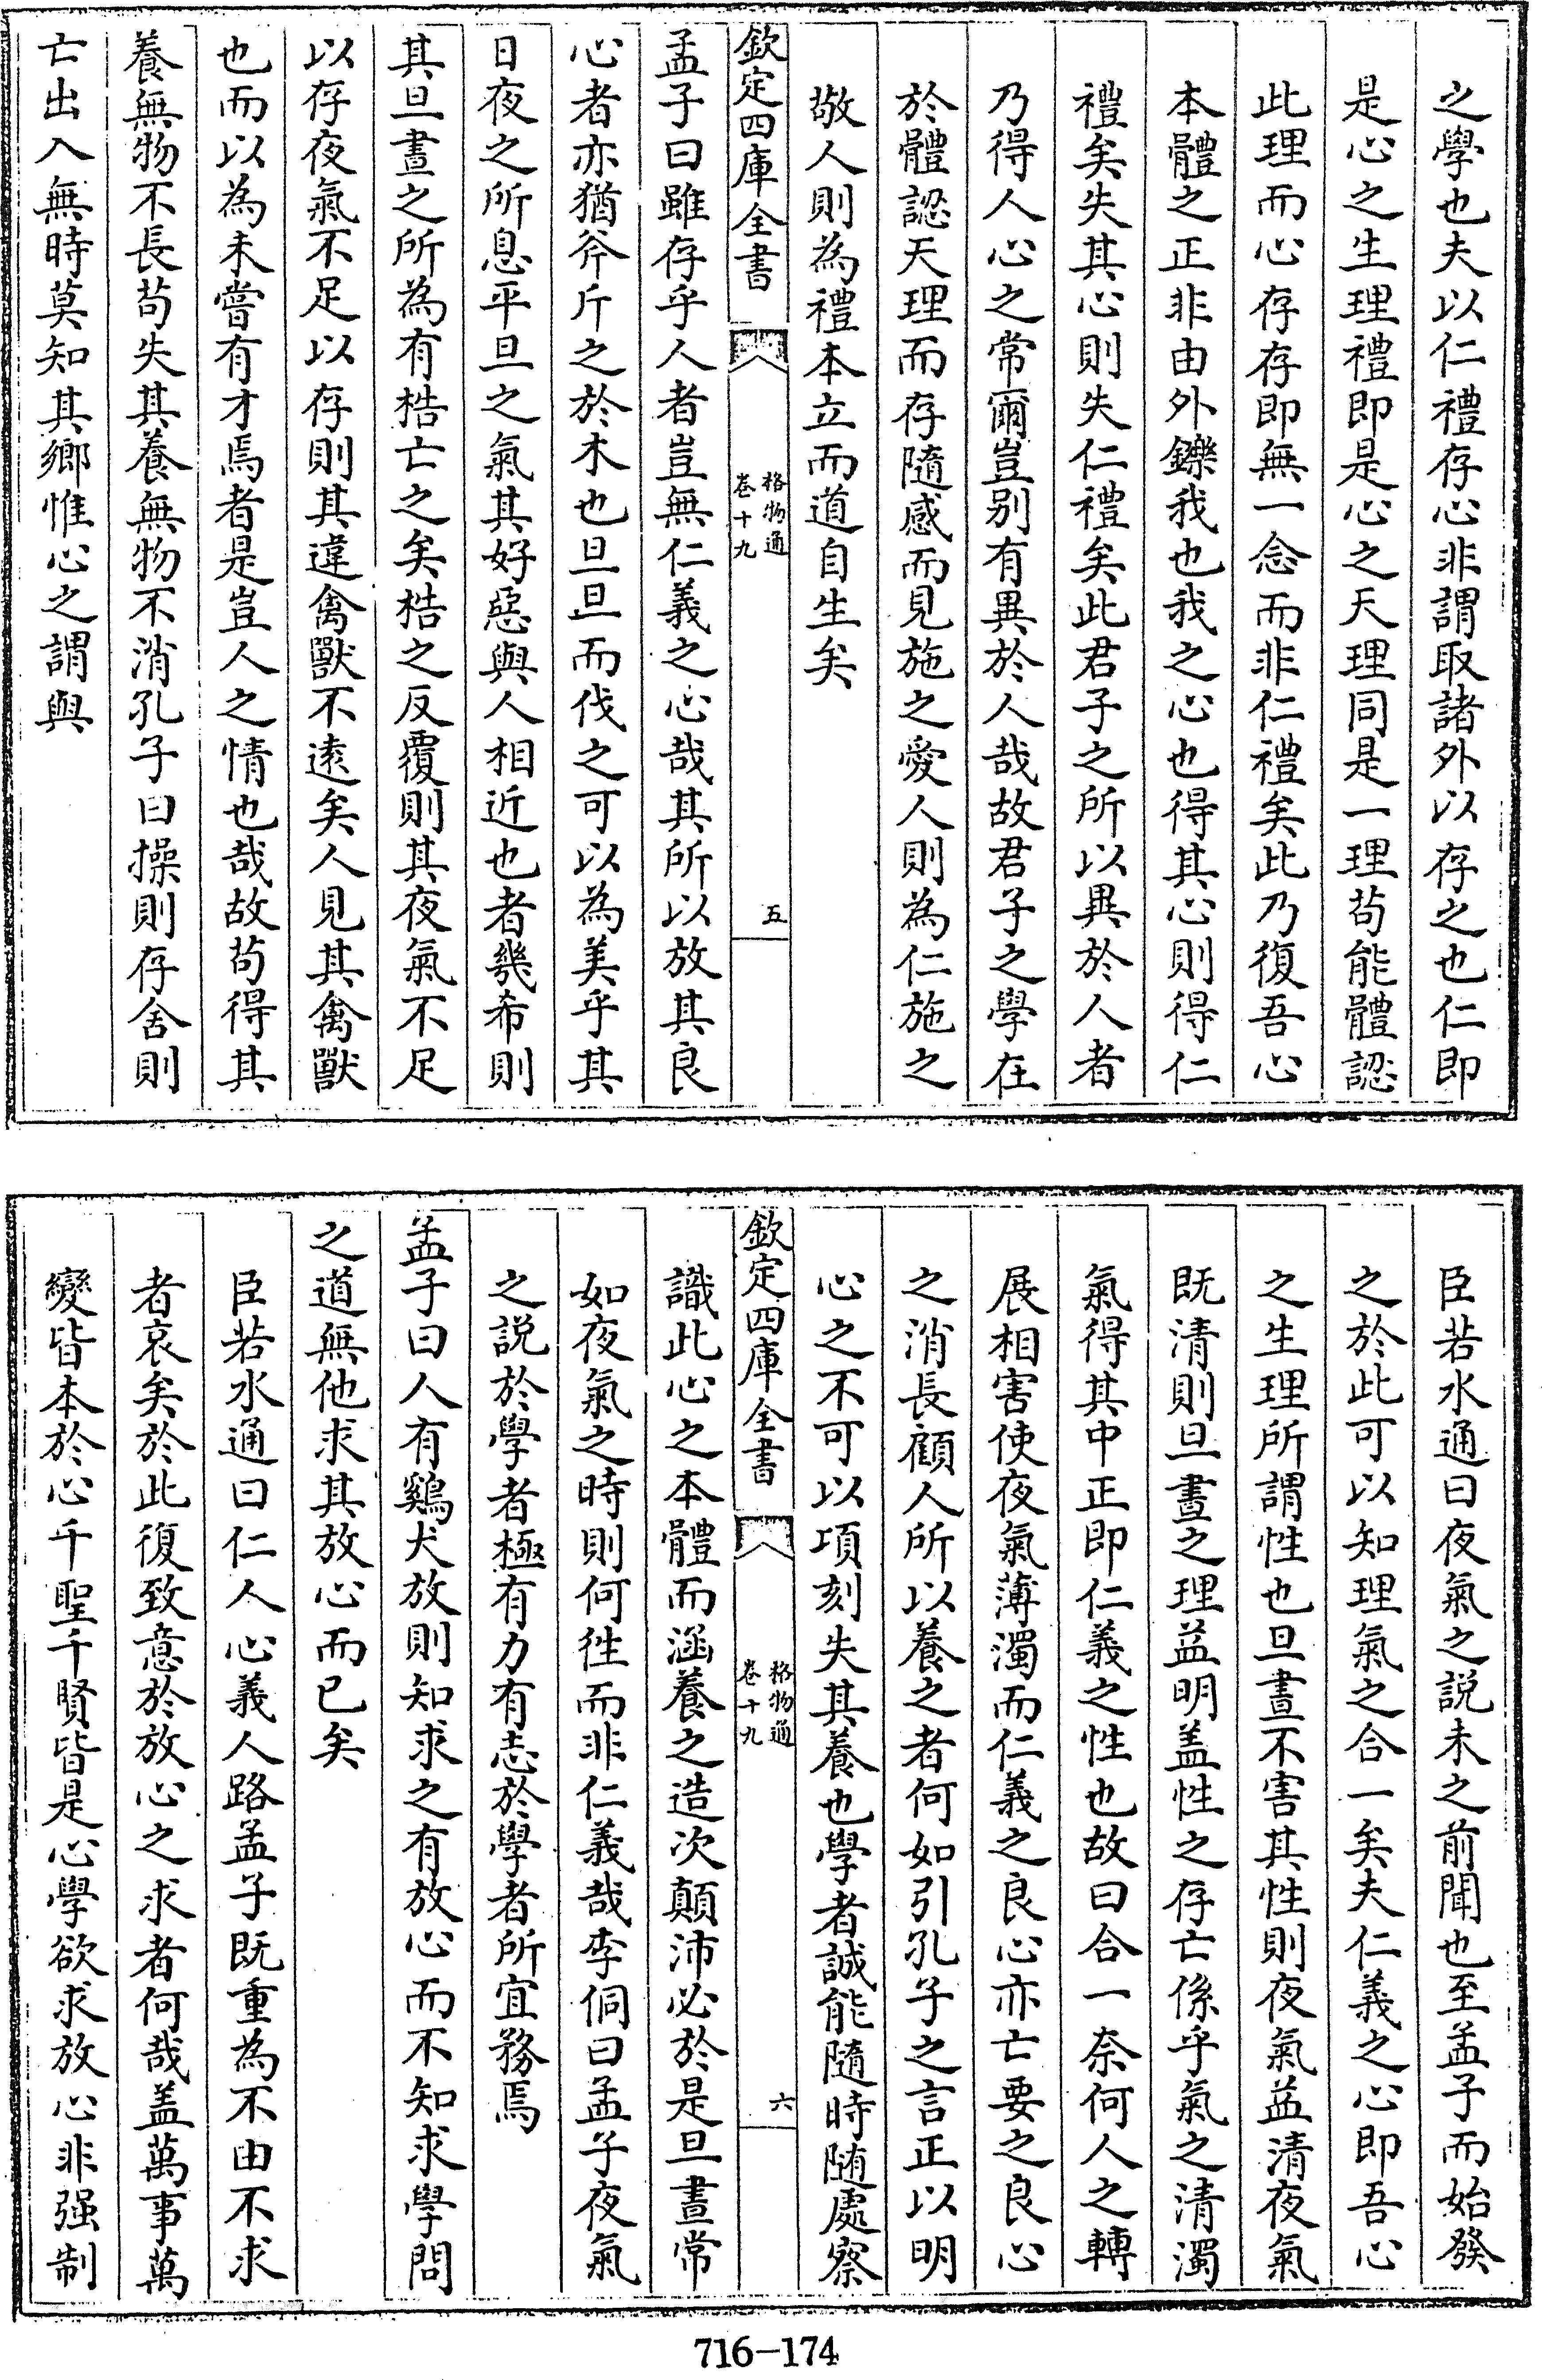 之學也夫以仁禮存心非謂取諸外以存之也仁即
是心之生理禮即是心之天理同是一理苟能體認
此理而心存存即無一念而非仁禮矣此乃復吾心
本體之正非由外鑠我也我之心也得其心則得仁
禮矣失其心則失仁禮矣此君子之所以異於人者
乃得人心之常爾豈别有異於人哉故君子之學在
於體認天理而存隨感而見施之愛人則為仁施之
敬人則為禮本立而道自生矣
欽定四庫全書
格物通
卷十九
五
孟子曰雖存乎人者豈無仁義之心哉其所以放其良
心者亦猶斧斤之於木也旦旦而伐之可以為美乎其
日夜之所息平旦之氣其好惡與人相近也者幾希則
其旦晝之所為有梏亡之矣梏之反覆則其夜氣不足
以存夜氣不足以存則其違禽獸不逺矣人見其禽獸
也而以為未嘗有才焉者是豈人之情也哉故苟得其
養無物不長苟失其養無物不消孔子曰操則存舍則
亡出入無時莫知其鄉惟心之謂與
臣若水通曰夜氣之説未之前聞也至孟子而始發
之於此可以知理氣之合一矣夫仁義之心即吾心
之生理所謂性也旦晝不害其性則夜氣益清夜氣
既清則旦晝之理益明盖性之存亡係乎氣之清濁
氣得其中正即仁義之性也故曰合一奈何人之轉
展相害使夜氣薄濁而仁義之良心亦亡要之良心
之消長顧人所以養之者何如引孔子之言正以明
心之不可以項刻失其養也學者誠能隨時随處察
欽定四庫全書
格物通
卷十九
六
識此心之本體而涵養之造次顛沛必於是旦晝常
如夜氣之時則何徃而非仁義哉李侗曰孟子夜氣
之説於學者極有力有志於學者所宜務焉
孟子曰人有鷄犬放則知求之有放心而不知求學問
之道無他求其放心而已矣
臣若水通曰仁人心義人路孟子既重為不由不求
者哀矣於此復致意於放心之求者何哉盖萬事萬
變皆本於心千聖千賢皆是心學欲求放心非强制
716-174